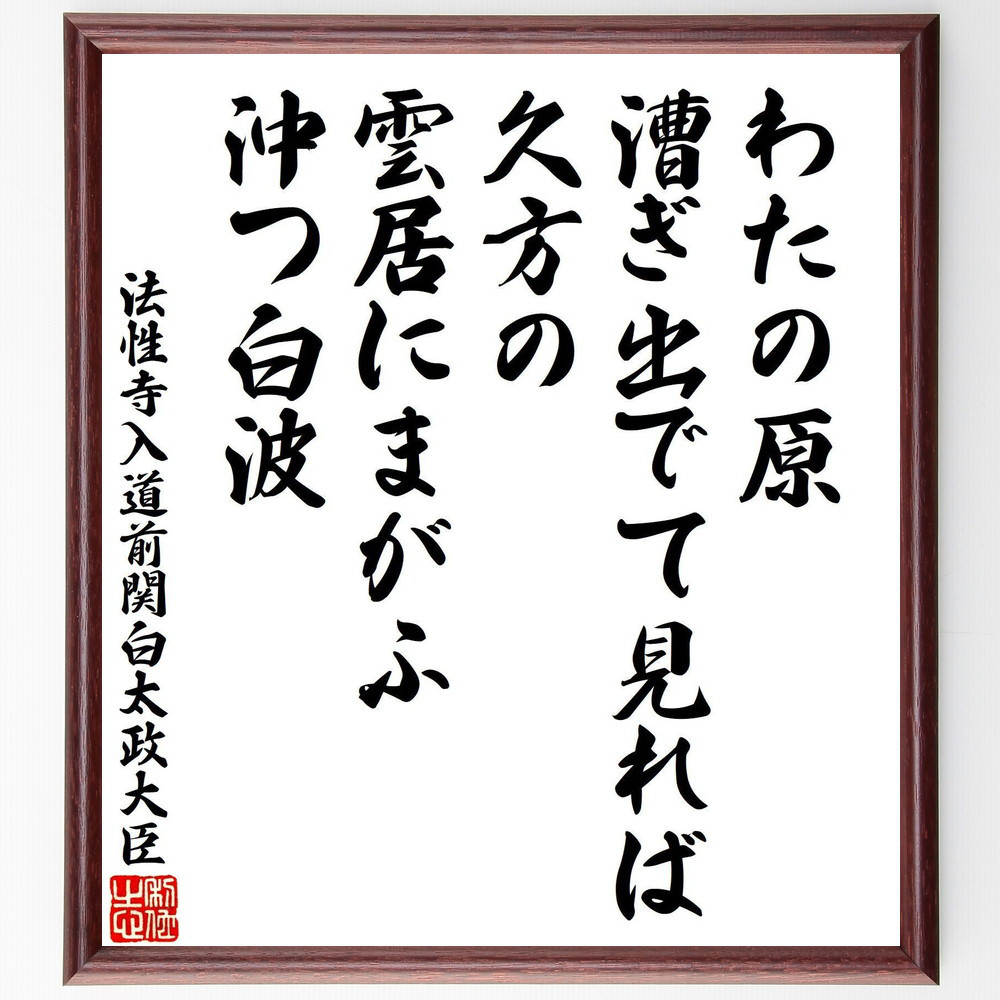 わたの原
漕ぎ出でて見れば
久方の
雲居にまがふ
沖つ白波
法性寺入道前関白太政大臣